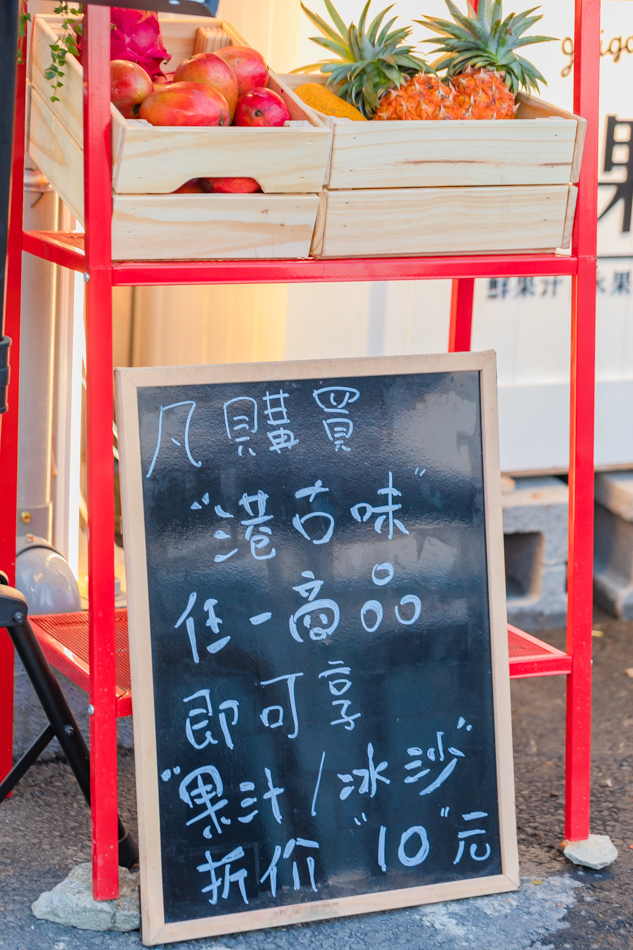 果
鮮果汁
凡購買
"港古味"
任一商品
即可享
"果汁/冰沙"
折价"10"元